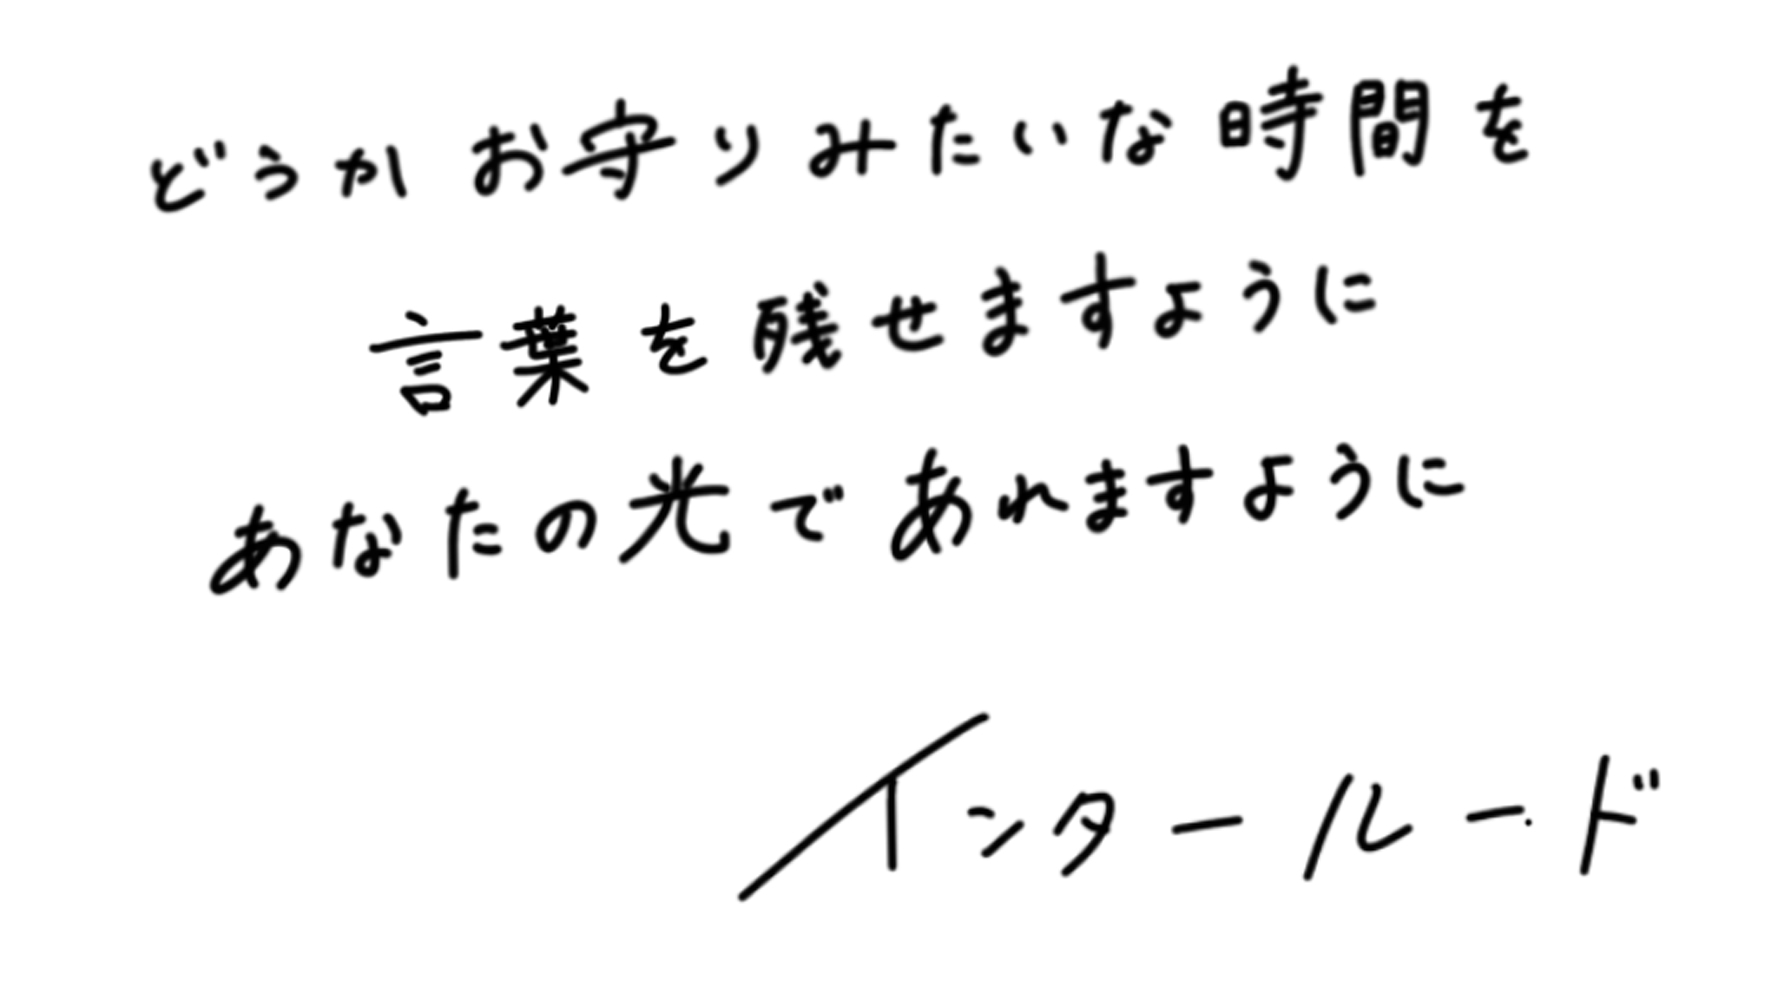 どうかお守りみたいな時間を
言葉を残せますように
あなたの光であれますように
インタールード